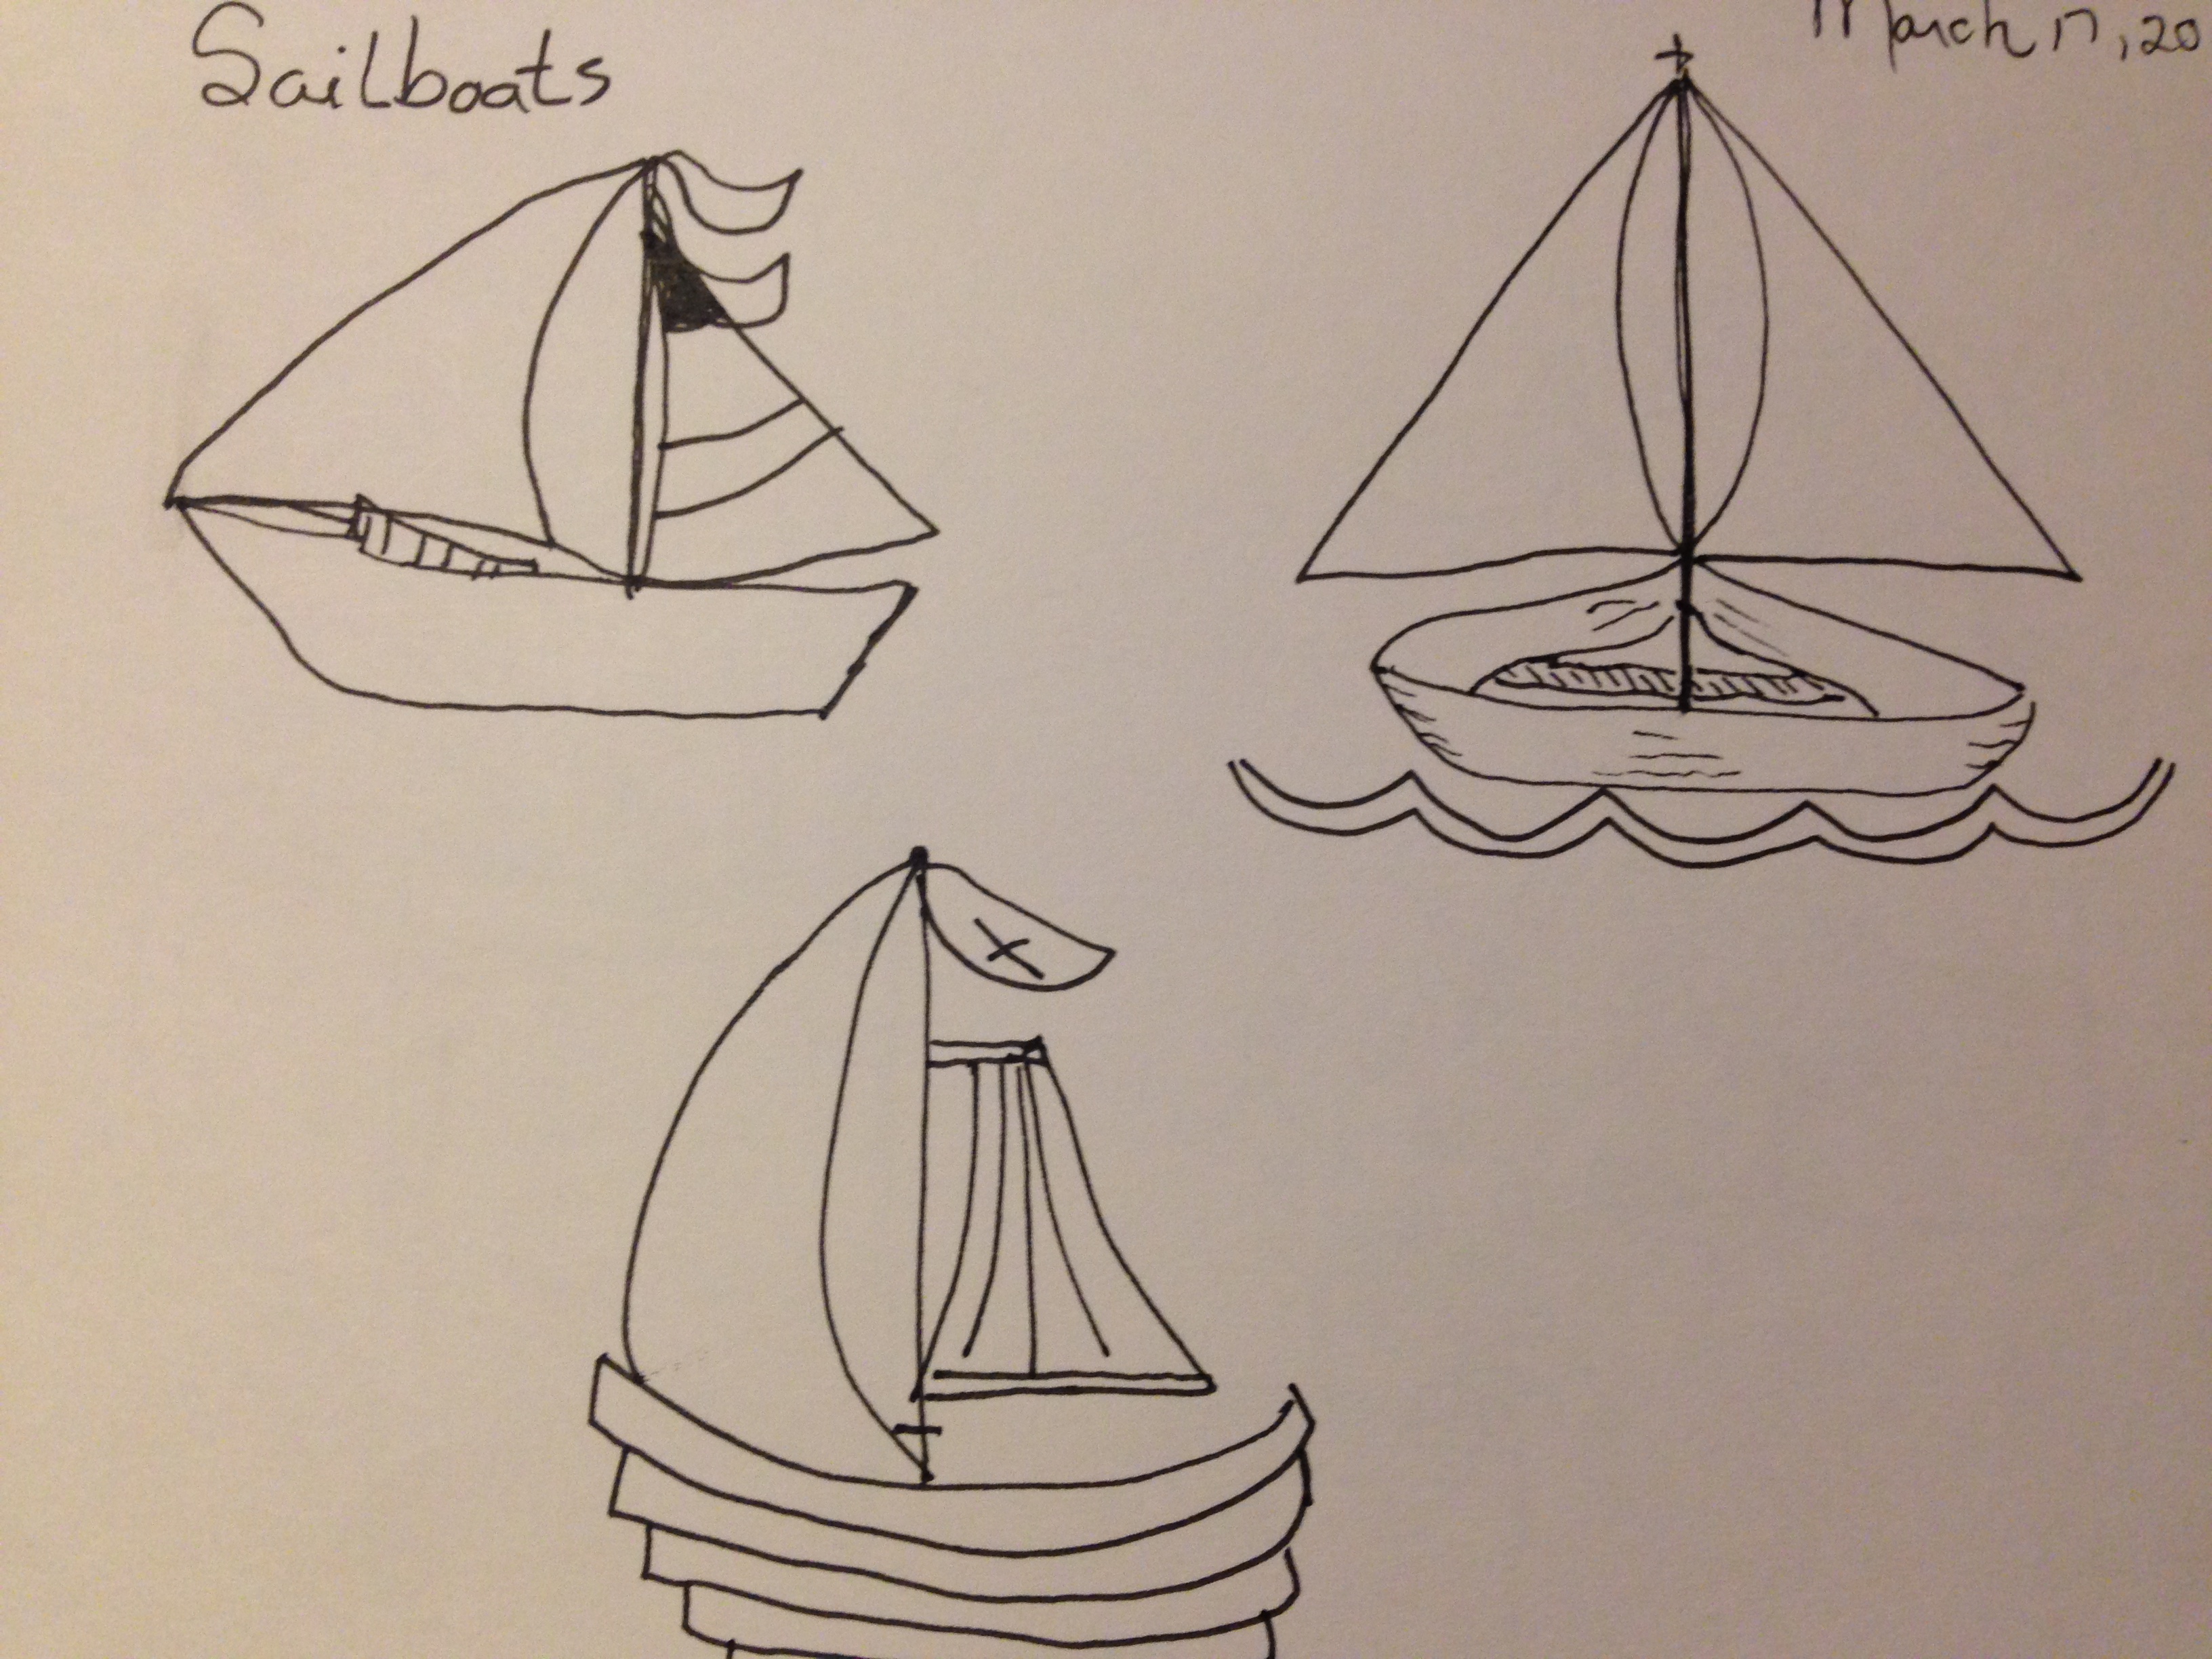 Sailboats
March 17, 20